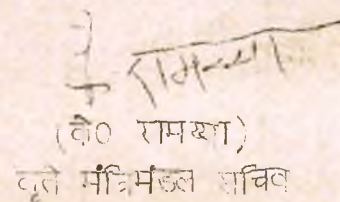 रामय्या
(के० रामय्या)
कृते मंत्रिमंडल सचिव